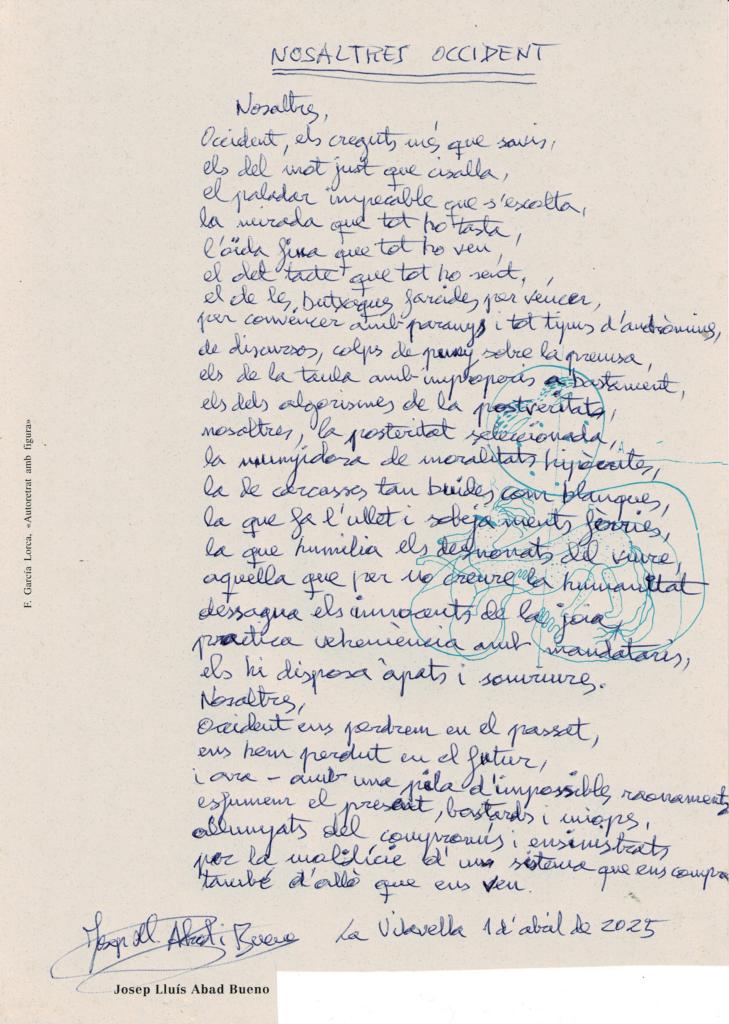 NOSALTRES OCCIDENT
Nosaltres,
Occident, els creguts més que savis,
els del mot just que cisalla,
el paladar impecable que s'escolta,
la mirada que tot ho tasta,
l'oïda fina que tot ho veu,
el del tacte que tot ho sent,
el de les butxaques farcides per véncer,
per convéncer amb paranys i tot tipus d'andròmines,
de discursos, colps de puny sobre la premsa,
els de la taula amb improperis a bastament,
els dels algorismes de la postveritats,
nosaltres, la posteritat seleccionada,
la munyidora de moralitats hipòcrites,
la de carcasses tan buides com blanques,
la que fa l'ullet i sobeja ments fèrries,
la que humilia els desnonats del viure,
aquella que per no creure la humanitat
dessagna els innocents de la joia,
practica vehemència amb mandataris,
els hi disposa àpats i somriures.
Nosaltres,
Occident ens perdrem en el passat,
ens hem perdut en el futur,
i ara - amb una pila d'impossibles raonaments
esfumem el present, bastards i miops,
allunyats del compromís i ensinistrats
per la maldície d'un sistema que ens compra
també d'allò que ens ven.
Josep Ll. Abad i Bueno La Vilavella 1 d'abril de 2025
Josep Lluís Abad Bueno
F. García Lorca. «Autoretrat amb figura»